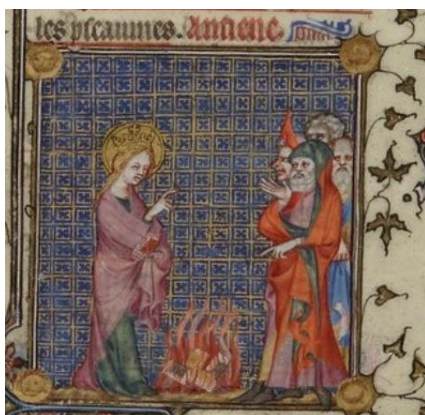 les pseaumes. Antiene.